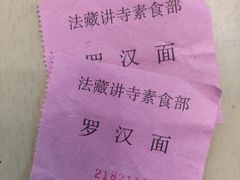 法藏讲寺素食部
罗汉面
法藏讲寺素食部
罗汉面